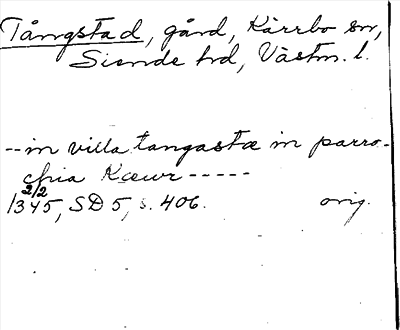 Tångstad, gård, Kärrbo sn,
Siende hd, Västm. l.
-- in villa tangastæ in parro-
chia Kæwr -----
2/2
1345, SD 5, s. 406. orig.